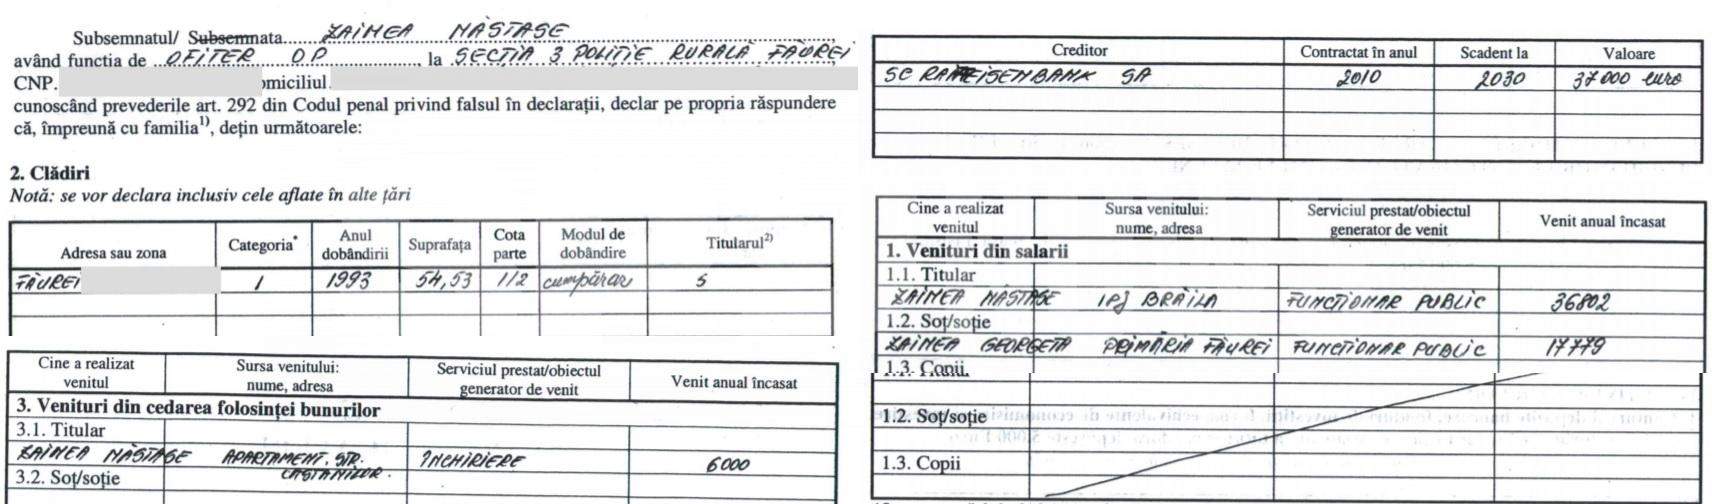 Subsemnatul/ Subsemnata ZAIMEA NĂSTASE
având functia de OFIȚER O.P. , la SECȚIA 3 POLIȚIE RURALĂ FĂUREI ,
CNP. omiciliul
cunoscând prevederile art. 292 din Codul penal privind falsul în declarații, declar pe propria răspundere
că, împreună cu familia1), dețin următoarele:
2. Clădiri
Notă: se vor declara inclusiv cele aflate în alte țări
Adresa sau zona Categoria* Anul dobândirii Suprafața Cota parte Modul de dobândire Titularul2)
FĂUREI 1 1993 54,53 1/2 cumpărar S
Cine a realizat venitul Sursa venitului: nume, adresa Serviciul prestat/obiectul generator de venit Venit anual încasat
3. Venituri din cedarea folosinței bunurilor
3.1. Titular
ZAIMEA NĂSTASE APARTAMENT. STR. CASTANILOR. ÎNCHIRIERE 6000
3.2. Soț/soție
Creditor Contractat în anul Scadent la Valoare
SC RAIFFEISENBANK SA 2010 2030 37000 euro
Cine a realizat venitul Sursa venitului: nume, adresa Serviciul prestat/obiectul generator de venit Venit anual încasat
1. Venituri din salarii
1.1. Titular
ZAIMEA NĂSTASE IPJ BRĂILA FUNCȚIONAR PUBLIC 36802
1.2. Soț/soție
ZAIMEA GEORGETA PRIMĂRIA FĂUREI FUNCȚIONAR PUBLIC 17779
1.3. Copii
1.2. Soț/soție
1.3. Copii